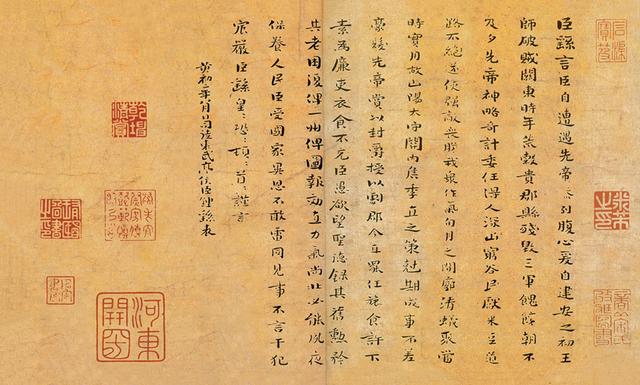 臣繇言臣自遭遇先帝忝列腹心爰自建安之初王
師破賊關東時年荒穀貴郡縣殘毀三軍餽饟朝不
及夕先帝神略奇計委任得人深山窮谷民獻米豆道
路不絕遂使強敵喪膽我眾作氣旬月之間廓清蟻聚當
時實用故山陽太守關內侯季直之策剋期成事不差
豪髮先帝賞以封爵授以劇郡今直罷任旅食許下
素為廉吏衣食不充臣愚欲望聖德錄其舊勳矜
其老困復俾一州俾圖報效直力氣尚壯必能夙夜
保養人民臣受國家異恩不敢雷同見事不言干犯
宸嚴臣繇皇:恐:頓:首:謹言
黃初二年八月日司徒東武亭侯臣鍾繇表
河東